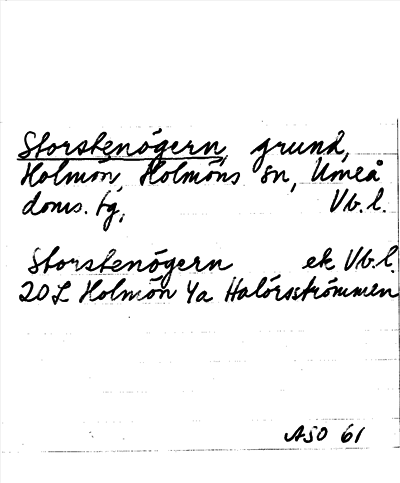 Storstenögern, grund,
Holmön, Holmöns sn, Umeå
doms. tg, Vb. l.
Storstenögern ek Vb. l.
20 L Holmön 4a Halörsströmmen
ASO 61